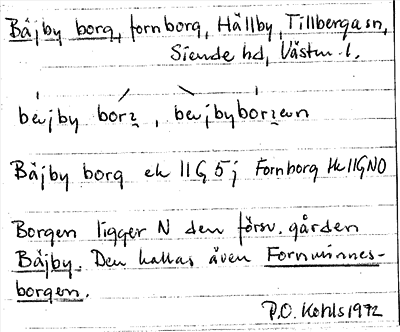 Bäjby borg, fornborg, Hällby, Tillberga sn,
Siende hd, Västm. l.
bäjby borz, bäjbyborzan
Bäjby borg ek 11G 5j Fornborg Hk 11GNO
Borgen ligger N den försv. gården
Bäjby. Den kallas även Fornminnes-
borgen.
P.O. Kohls 1972